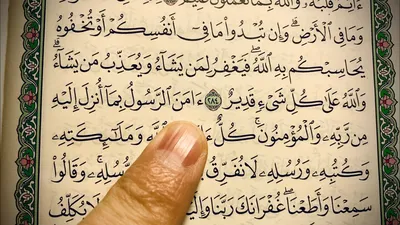 ءَاثِمٌ قَلْبُهُۥ ۗ وَٱللَّهُ بِمَا تَعْمَلُونَ عَلِيمٌ
وَمَا فِى ٱلْأَرْضِ ۗ وَإِن تُبْدُوا۟ مَا فِىٓ أَنفُسِكُمْ أَوْ تُخْفُوهُ
يُحَاسِبْكُم بِهِ ٱللَّهُ ۖ فَيَغْفِرُ لِمَن يَشَآءُ وَيُعَذِّبُ مَن يَشَآءُ ۗ
وَٱللَّهُ عَلَىٰ كُلِّ شَىْءٍ قَدِيرٌ ٢٨٤ ءَامَنَ ٱلرَّسُولُ بِمَآ أُنزِلَ إِلَيْهِ
مِن رَّبِّهِۦ وَٱلْمُؤْمِنُونَ ۚ كُلٌّ وَمَلَـٰٓئِكَتِهِۦ
وَكُتُبِهِۦ وَرُسُلِهِۦ لَا نُفَرِّقُ رُّسُلِهِۦ ۚ وَقَالُوا۟
سَمِعْنَا وَأَطَعْنَا ۖ غُفْرَانَكَ رَبَّنَا وَإِلَيْكَ لَا يُكَلِّفُ